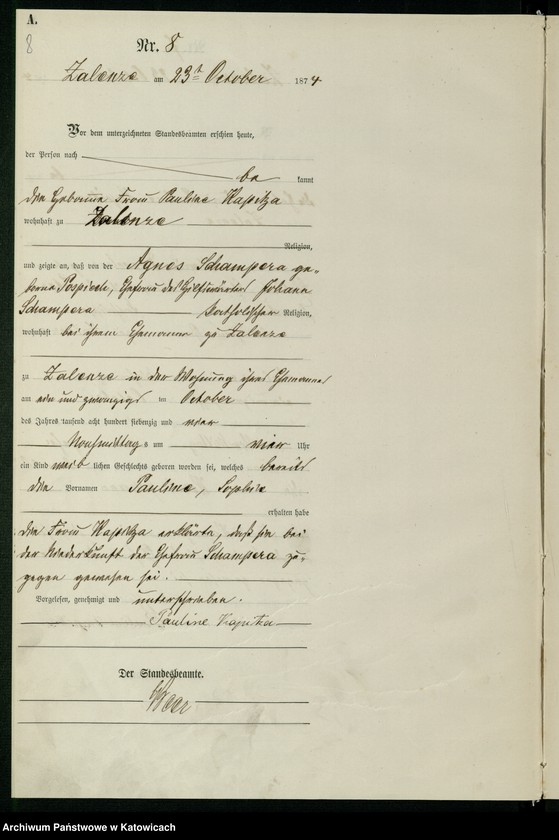 A.
8
Nr. 8
Zalenze am 23t October 1874
Vor dem unterzeichneten Standesbeamten erschien heute,
der Person nach
be kannt
die Hebamme Frau Pauline Kapitza
wohnhaft zu Zalenze
Religion,
und zeigte an, daß von der Agnes Schampera ge-
borne Pospiech, Ehefrau des Johann
Schampera katholischer Religion,
wohnhaft bei ihrem Ehemanne zu Zalenze
zu Zalenze in der Wohnung ihres Ehemannes
am ein und zwanzigs ten October
des Jahres tausend acht hundert siebenzig und vier
Nachmittags um vier Uhr
ein Kind weib lichen Geschlechts geboren worden sei, welches bereits
die Vornamen Pauline, Sophie
erhalten habe
die Frau Kapitza erklärte, daß sie bei
der Niederkunft der Ehefrau Schampera zu-
gegen gewesen sei.
Vorgelesen, genehmigt und unterschrieben.
Pauline Kapitza
Der Standesbeamte.
Archiwum Państwowe w Katowicach